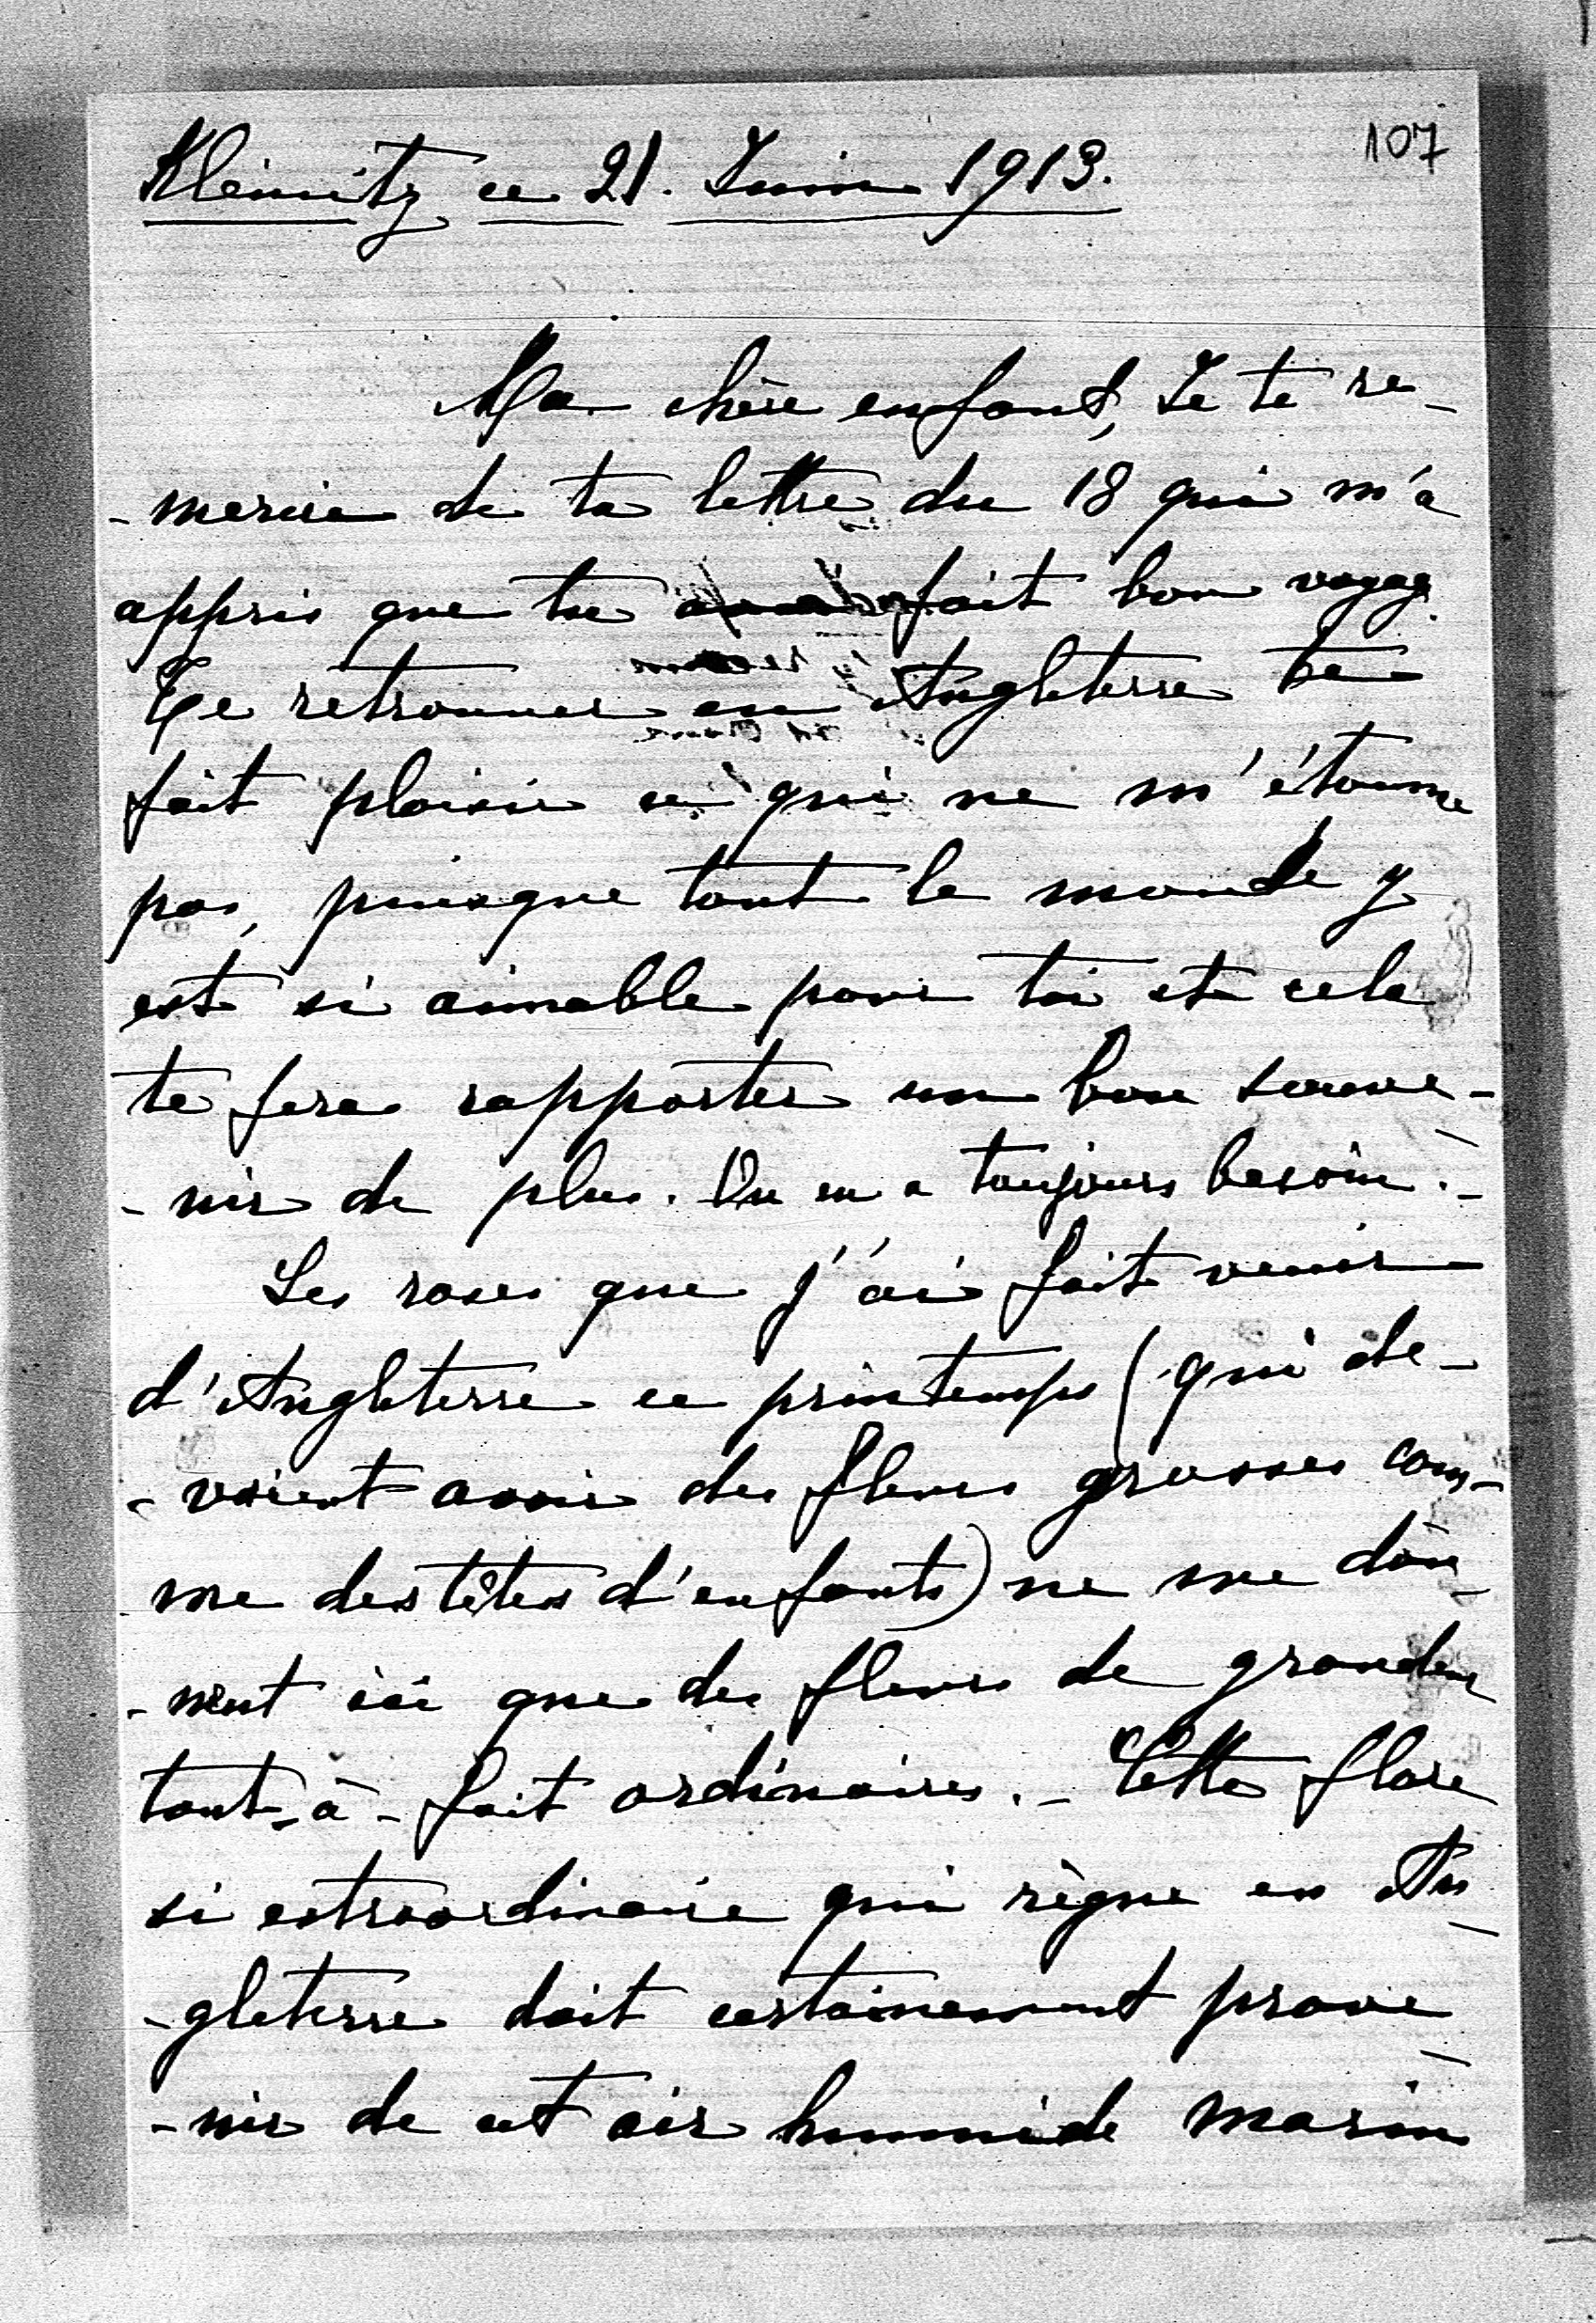 107
Kleinitz ce 21. Juin 1913.
Ma chère enfant, Je te re-
-mercie de ta lettre du 18 qui m'a
appris que tu fait bon voyage.
Te retrouver en Angleterre te
fait plaisir ce qui ne m'étonne
pas, puisque tout le monde y
est si aimable pour toi et cela
te fera rapporter un bon souve-
-nir de plus. On en a toujours besoin.-
Les roses que j'ai fait venir
d'Angleterre ce printemps (qui de-
-vaient avoir des fleurs grosses com-
-me des têtes d'enfants) ne me don-
-nent ici que des fleurs de grandeur
tout-à-fait ordinaires.- Cette flore
si extraordinaire qui règne en An-
-gleterre doit certainement prove-
-nir de cet air humide marin